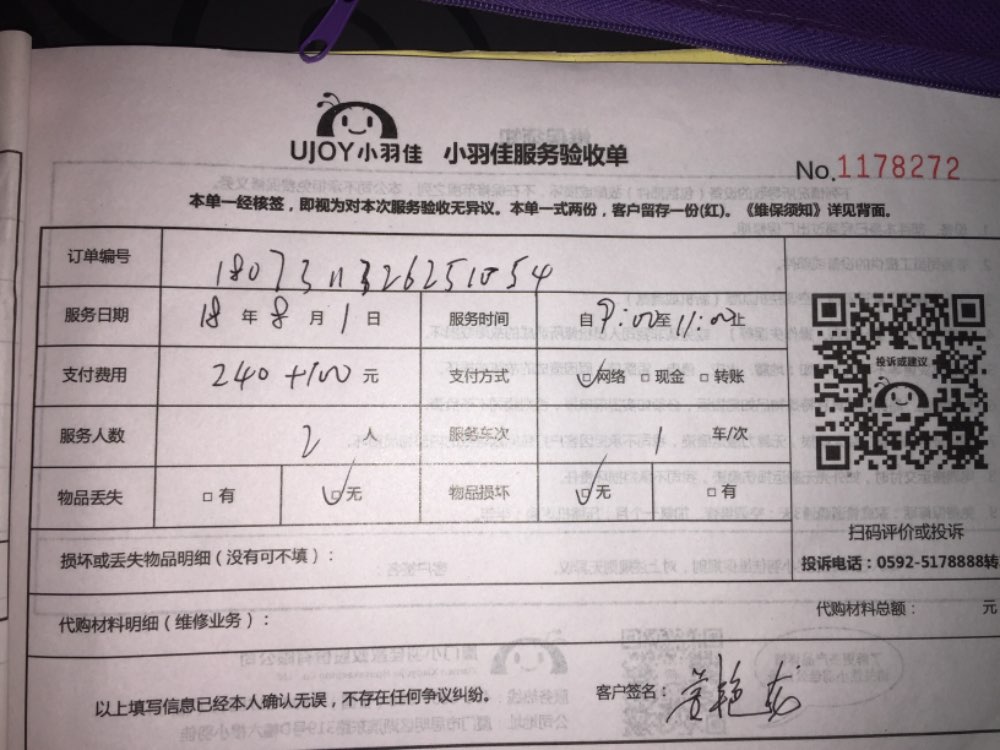 UJOY小羽佳 小羽佳服务验收单
No.1178272
本单一经核签，即视为对本次服务验收无异议。本单一式两份，客户留存一份(红)。《维保须知》详见背面。
订单编号 1807311326251054
服务日期 18 年 8 月 1 日 服务时间 自 9:00 至 11:00 止
支付费用 240+100 元 支付方式 □网络 □现金 □转账
服务人数 2 人 服务车次 1 车/次
物品丢失 □有 □无 物品损坏 □无 □有
投诉或建议
扫码评价或投诉
投诉电话：0592-5178888转
损坏或丢失物品明细（没有可不填）：
代购材料明细（维修业务）：
代购材料总额： 元
以上填写信息已经本人确认无误，不存在任何争议纠纷。
客户签名：